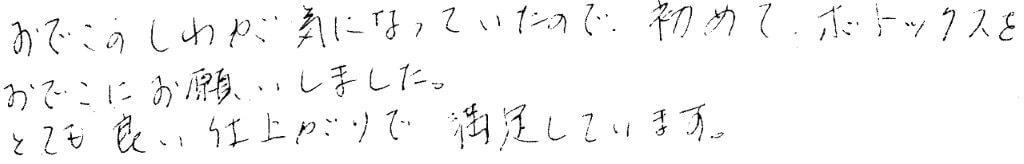 おでこのしわが気になっていたので、初めて、ボトックスを
おでこにお願いしました。
とても良い仕上がりで満足しています。